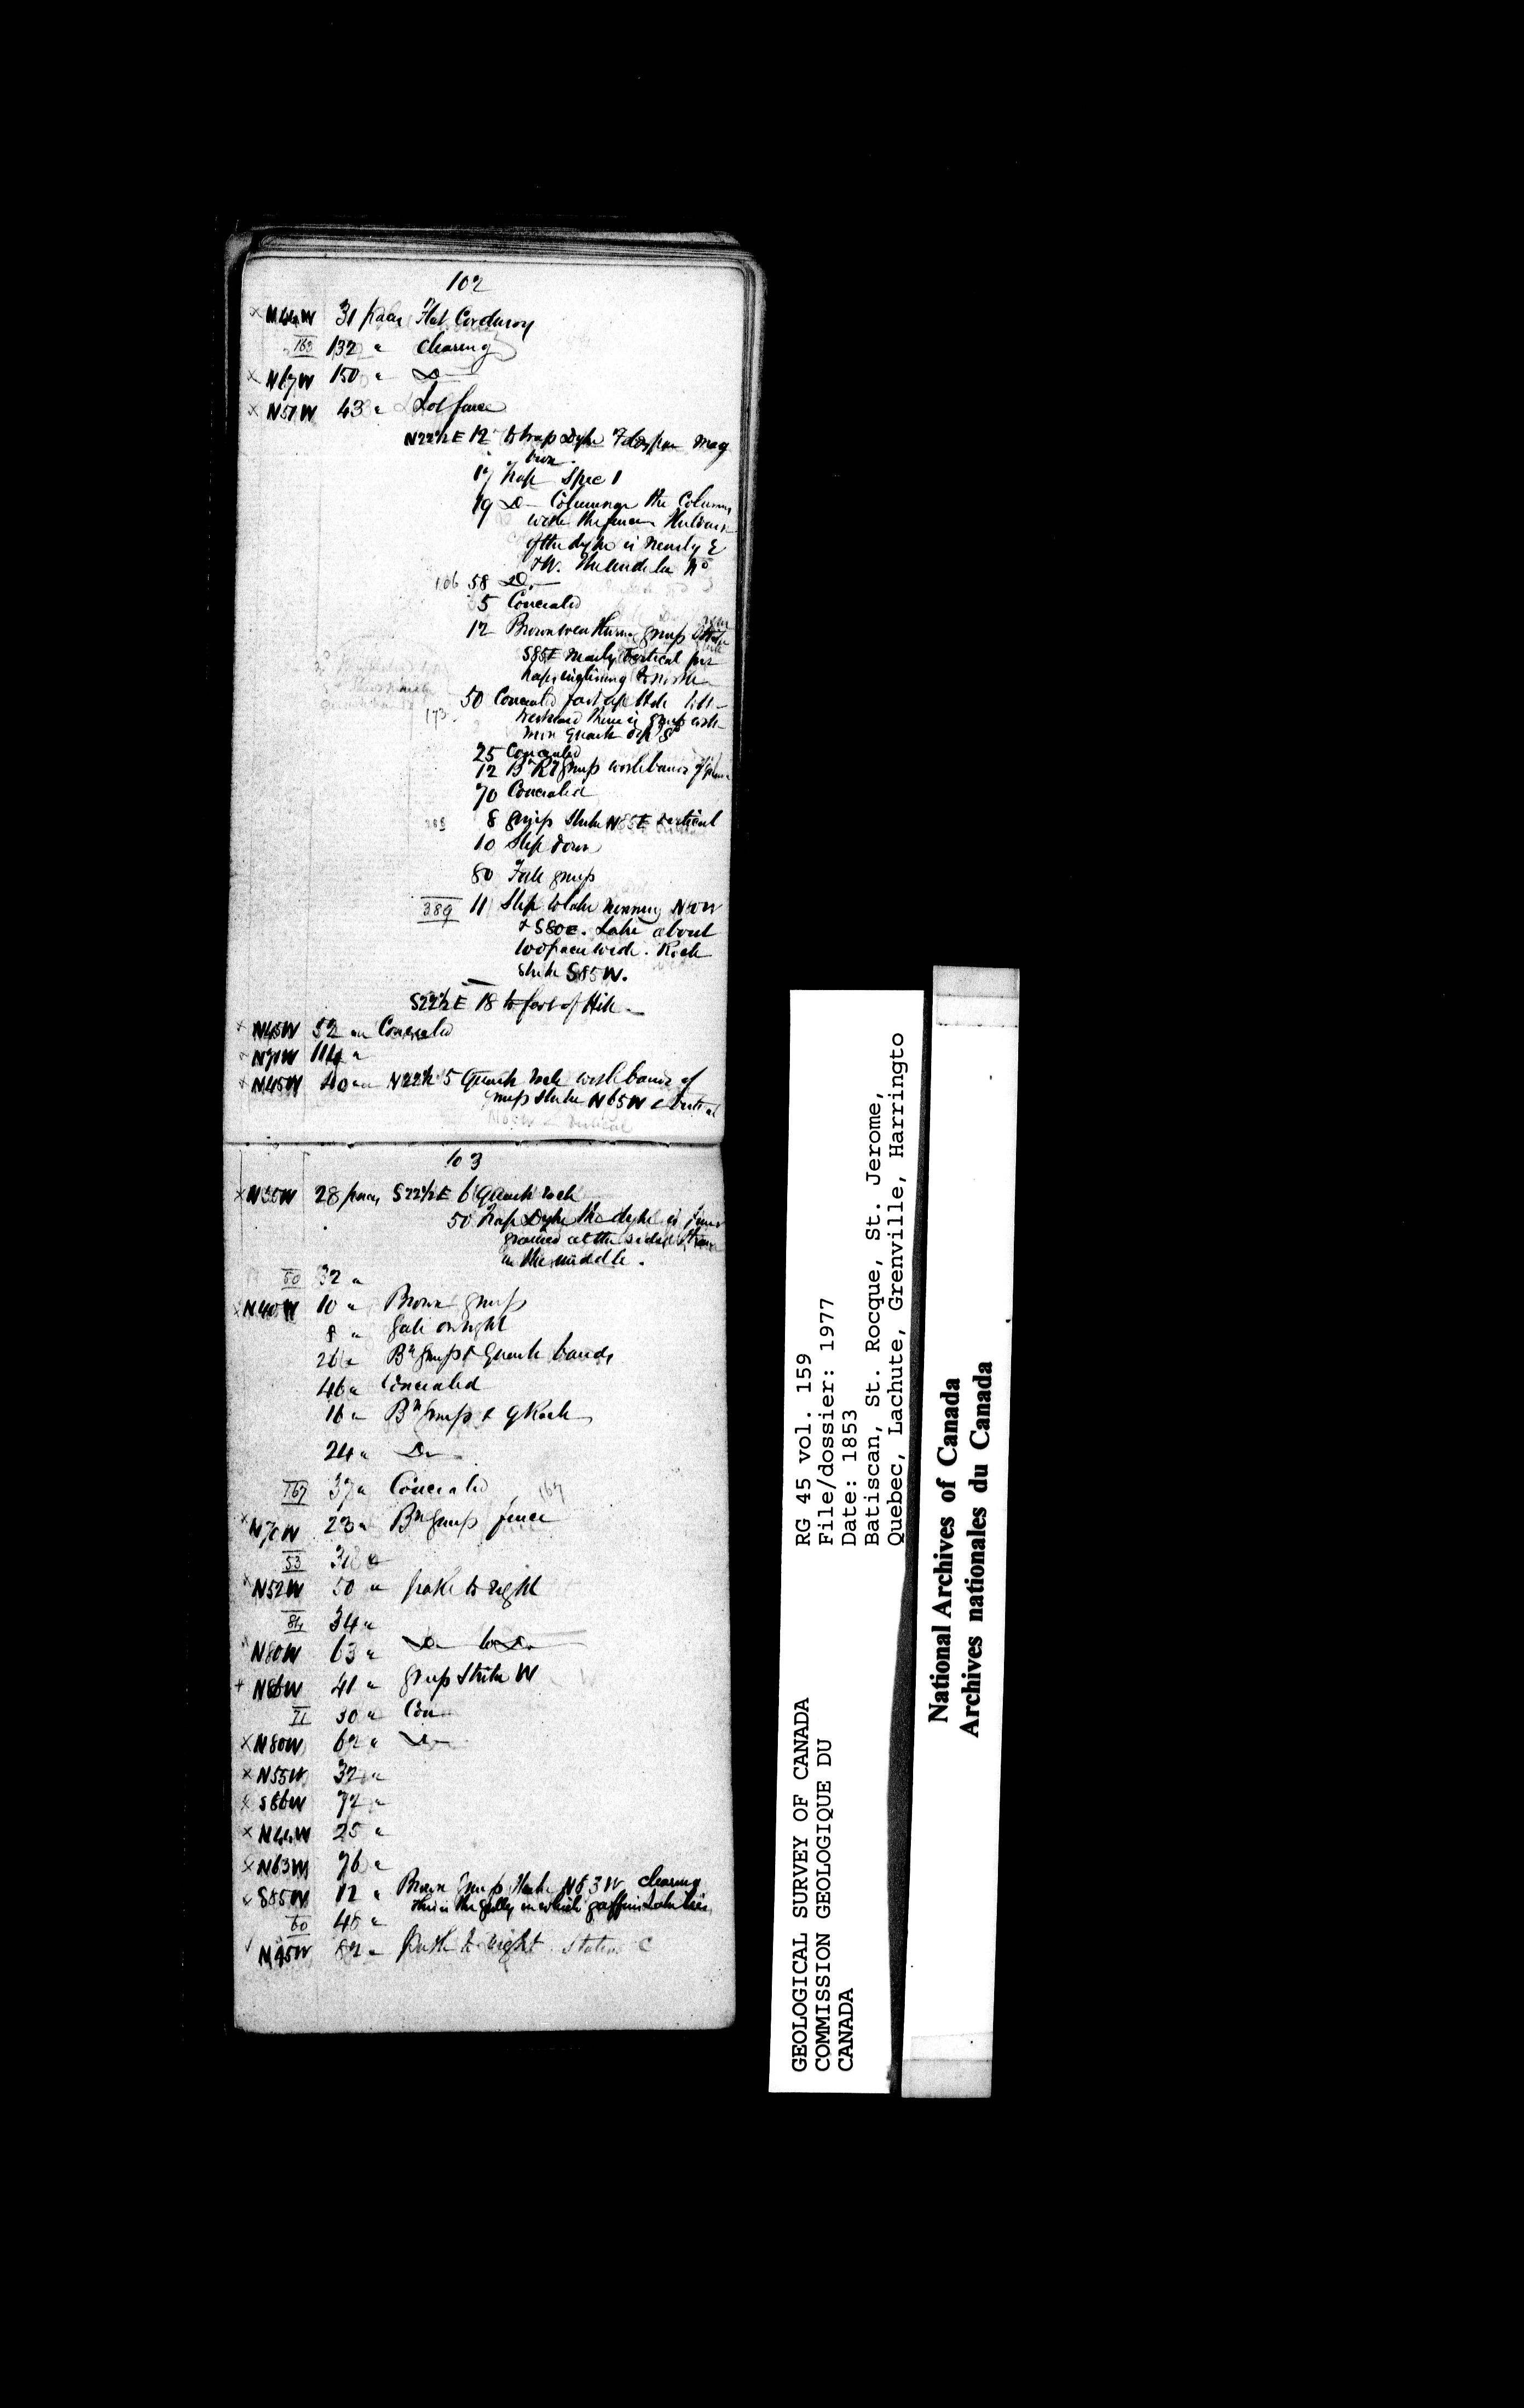 102
× N44W 31 paces Flat Corduroy
163 132 " Clearing
× N67W 150 " Do
× N51W 43 " Lot fence
N22½E 12 to trap Dyke Feldspar mag
iron.
17 trap Spec 1
19 Do Columnar the Columns
of the dyke is nearly E
& W.
106 58 Do
5 Concealed
12 Brown weathering gneiss strike
S85E nearly vertical per
haps inclining to north
50 Concealed foot of hill
173 westward there is gneiss with
quartz dip S
25 Concealed
12 Bn Rd gneiss with bands of
70 Concealed
288 8 gneiss strike N85E vertical
10 Step down
80 gneiss
389 11 Step to lake running N80W
& S80E. Lake about
100 paces wide. Rock
strike S85W.
S22½E 18 to foot of Hill
× N45W 52 " Concealed
N70W 114 "
× N45W 40 " N22½ 5 Quartz rock with bands of
gneiss strike N65W vertical
103
× N35W 28 paces S22½E 6 Quartz rock
50 Trap Dyke the dyke is finer
grained at the sides than
in the middle.
60 32 "
× N40W 10 " Brown gneiss
8 " gate on right
26 " Bn gneiss & Quartz bands
46 " Concealed
16 " Bn gneiss & Q Rock
24 " Do
167 37 " Concealed 167
× N70W 23 " Bn gneiss fence
53 30 "
× N52W 50 " path to right
84 34 "
N80W 63 " Do to Do
+ N86W 41 " gneiss strike W
71 30 " Con
× N80W 62 " Do
× N55W 32 "
× S86W 72 "
× N44W 25 "
× N63W 76 "
S85W 12 " Brown gneiss strike N83W clearing
this is the gully in which Lake lies
60 48 "
N45W 82 " path to right station C
GEOLOGICAL SURVEY OF CANADA
COMMISSION GEOLOGIQUE DU
CANADA
RG 45 vol. 159
File/dossier: 1977
Date: 1853
Batiscan, St. Rocque, St. Jerome,
Quebec, Lachute, Grenville, Harringto
National Archives of Canada
Archives nationales du Canada